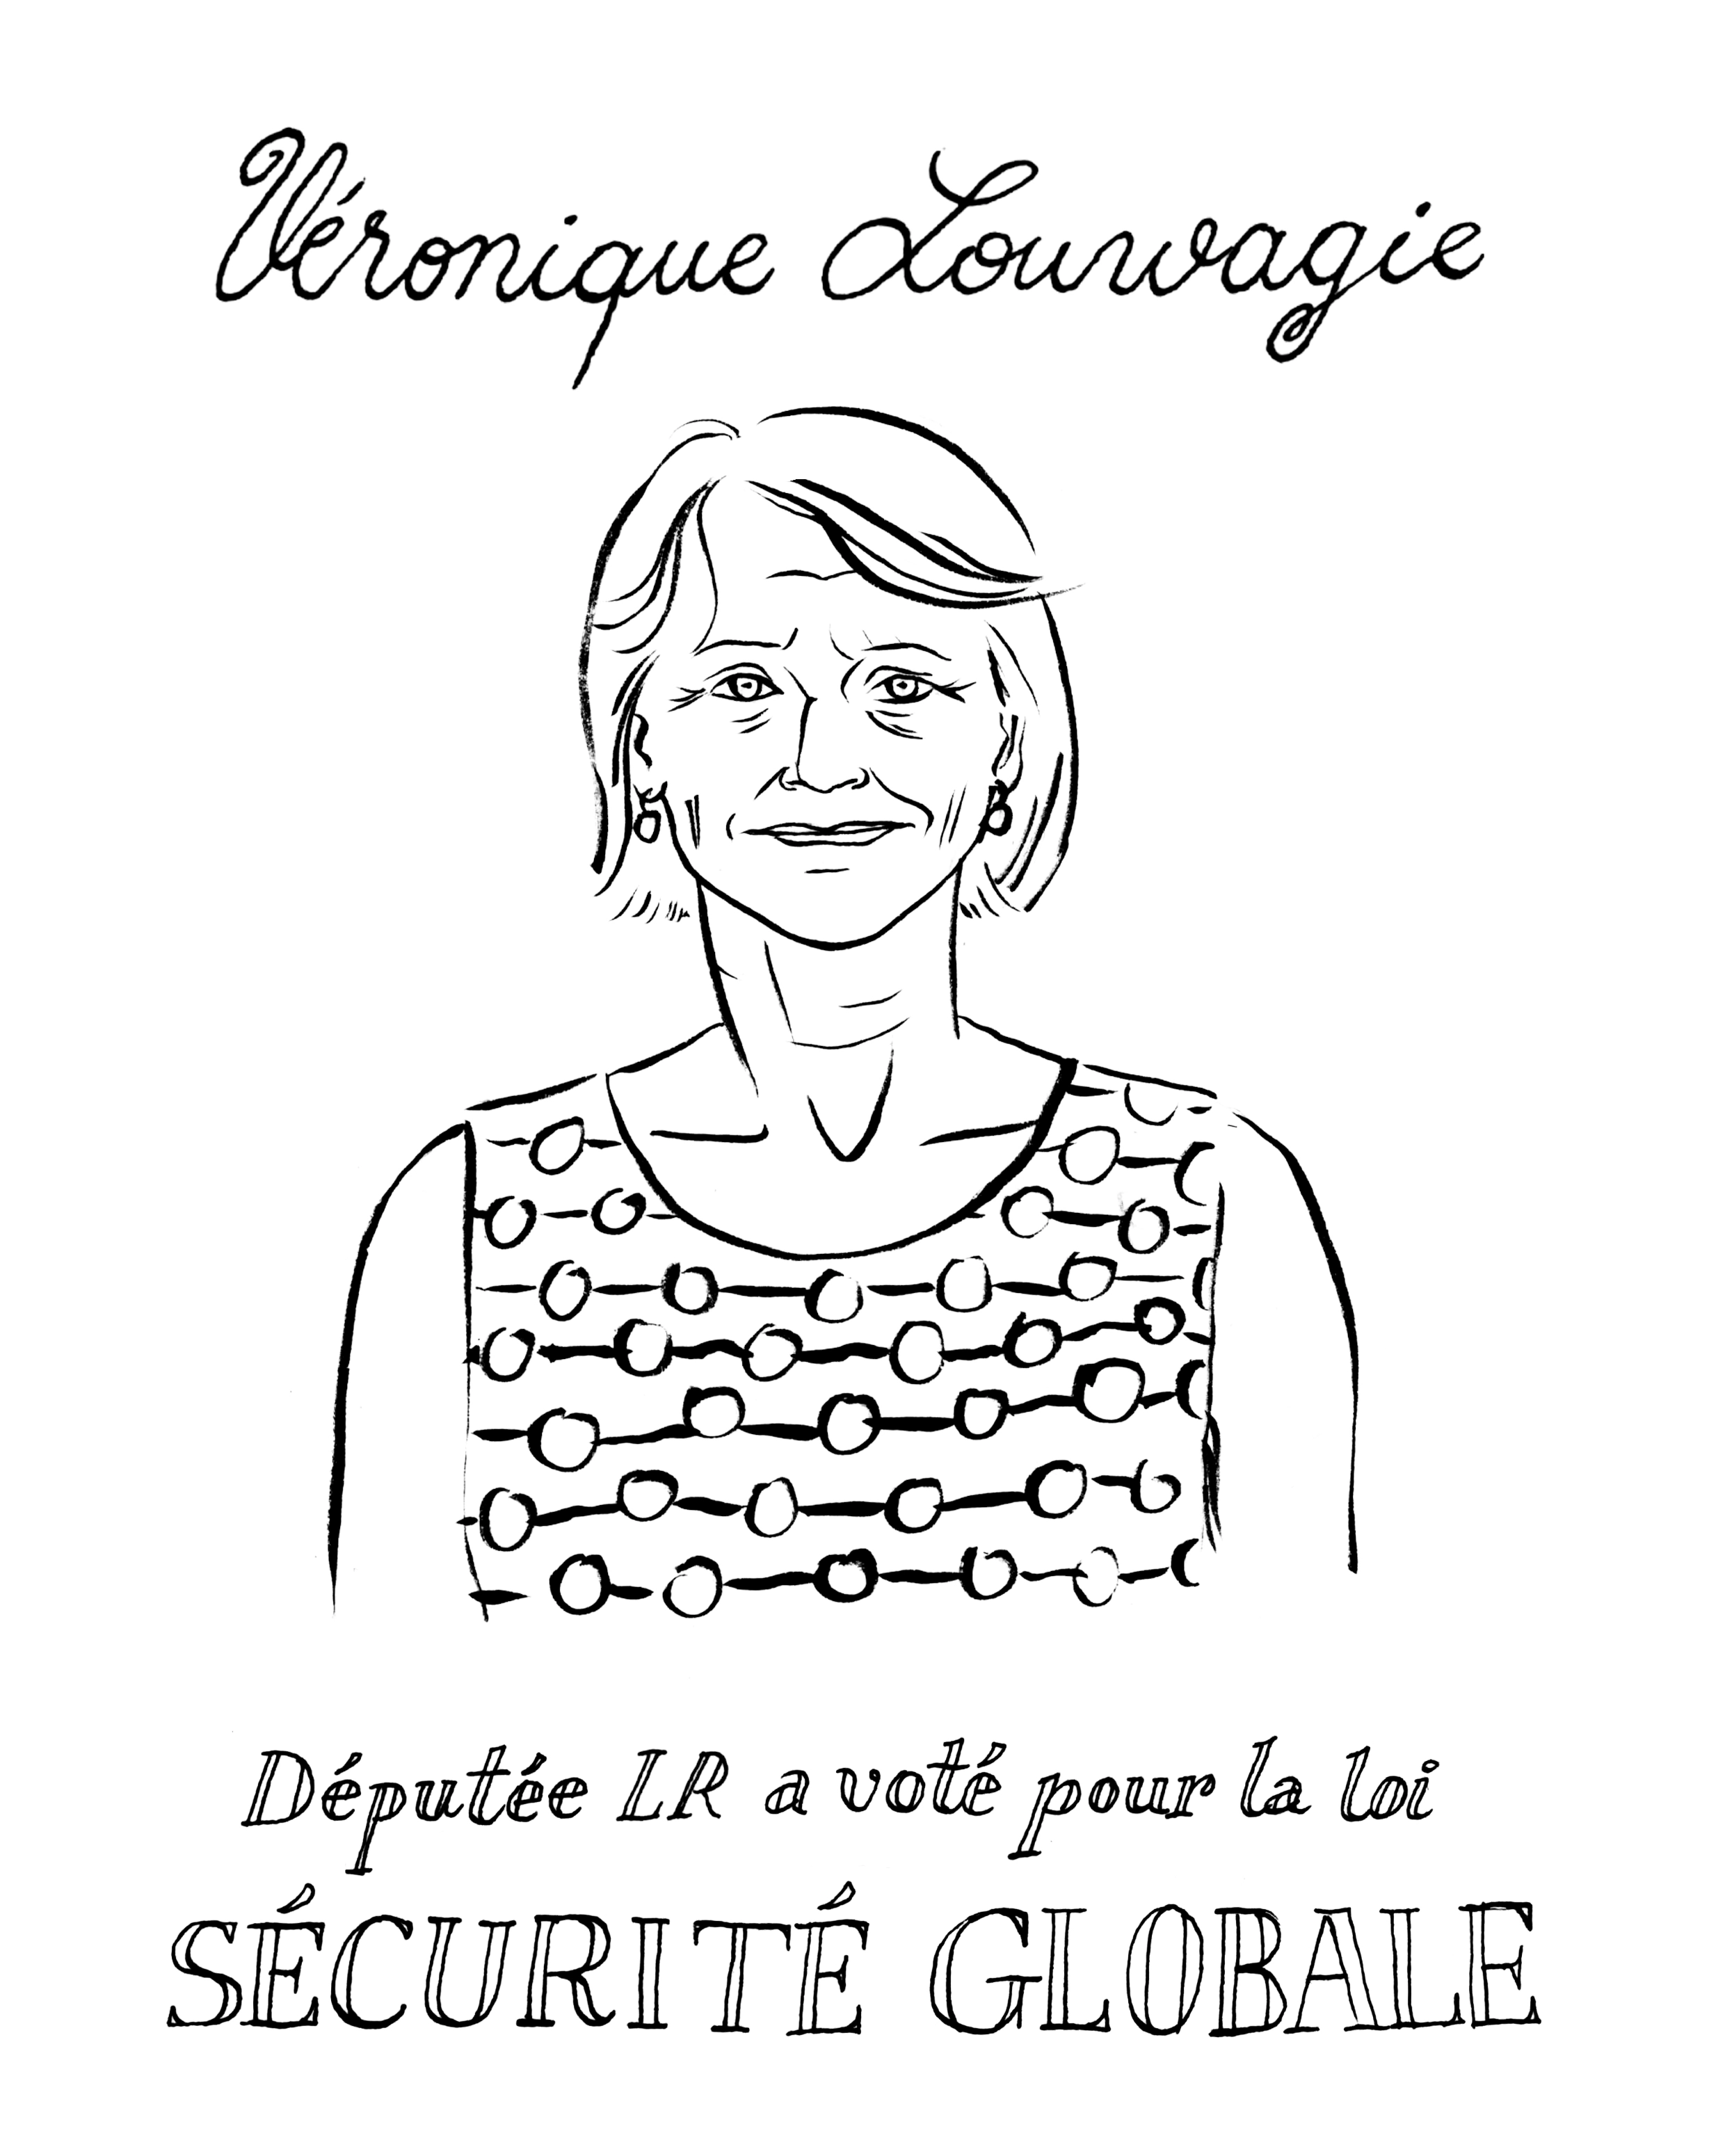 Véronique Louwagie
Députée LR a voté pour la loi
SÉCURITÉ GLOBALE